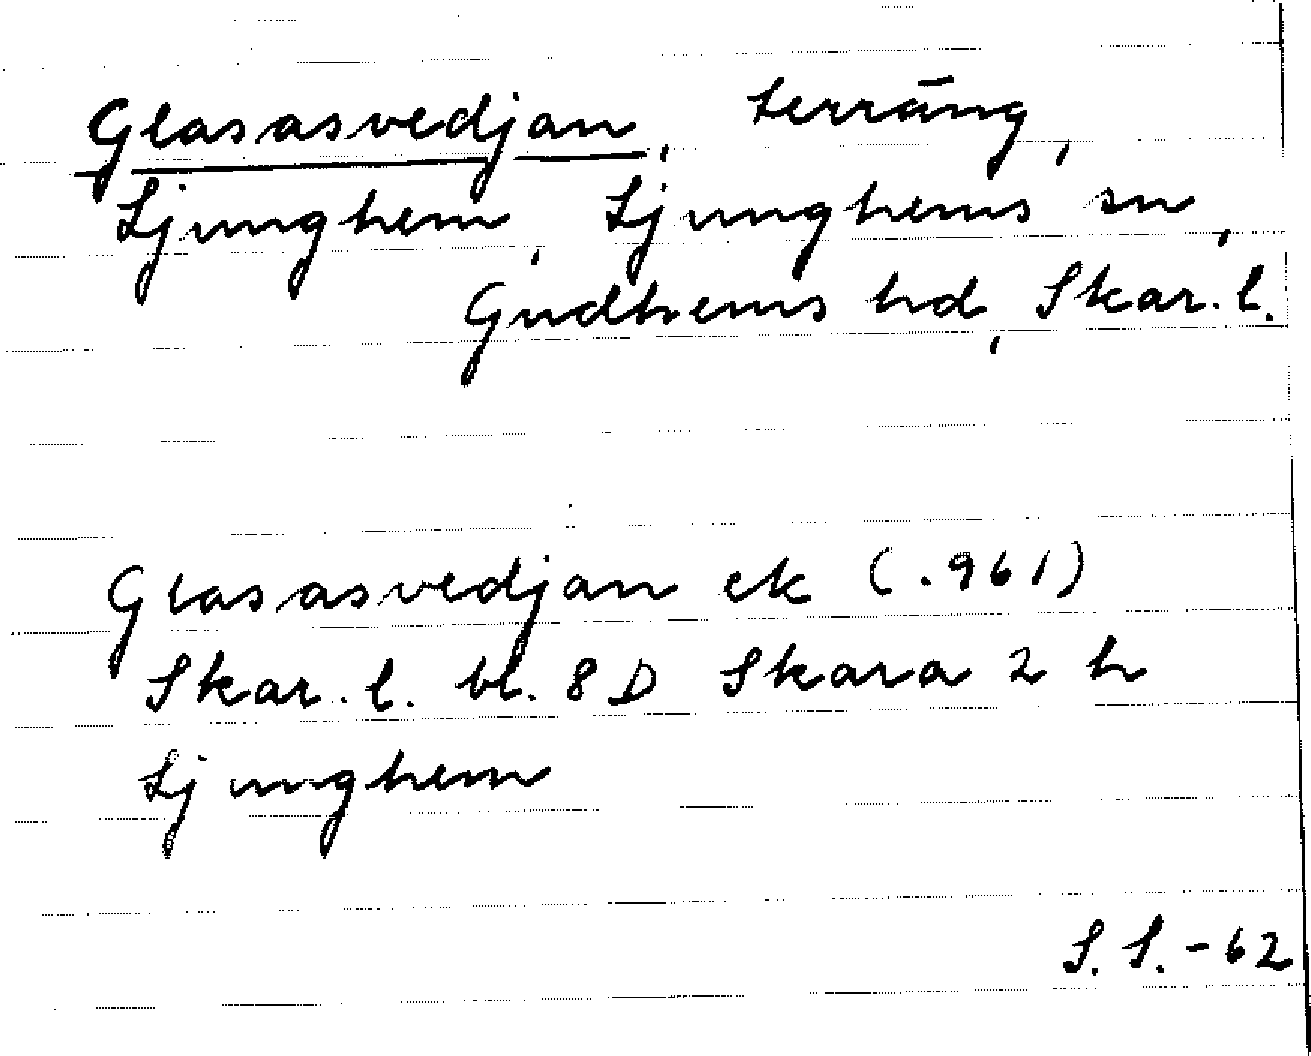 Glasasvedjan, terräng,
Ljunghem, Ljunghems sn,
Gudhems hd, Skar. l.
Glasasvedjan ek (.961)
Skar. l. bl. 8D Skara 2 h
Ljunghem
S. S. -62